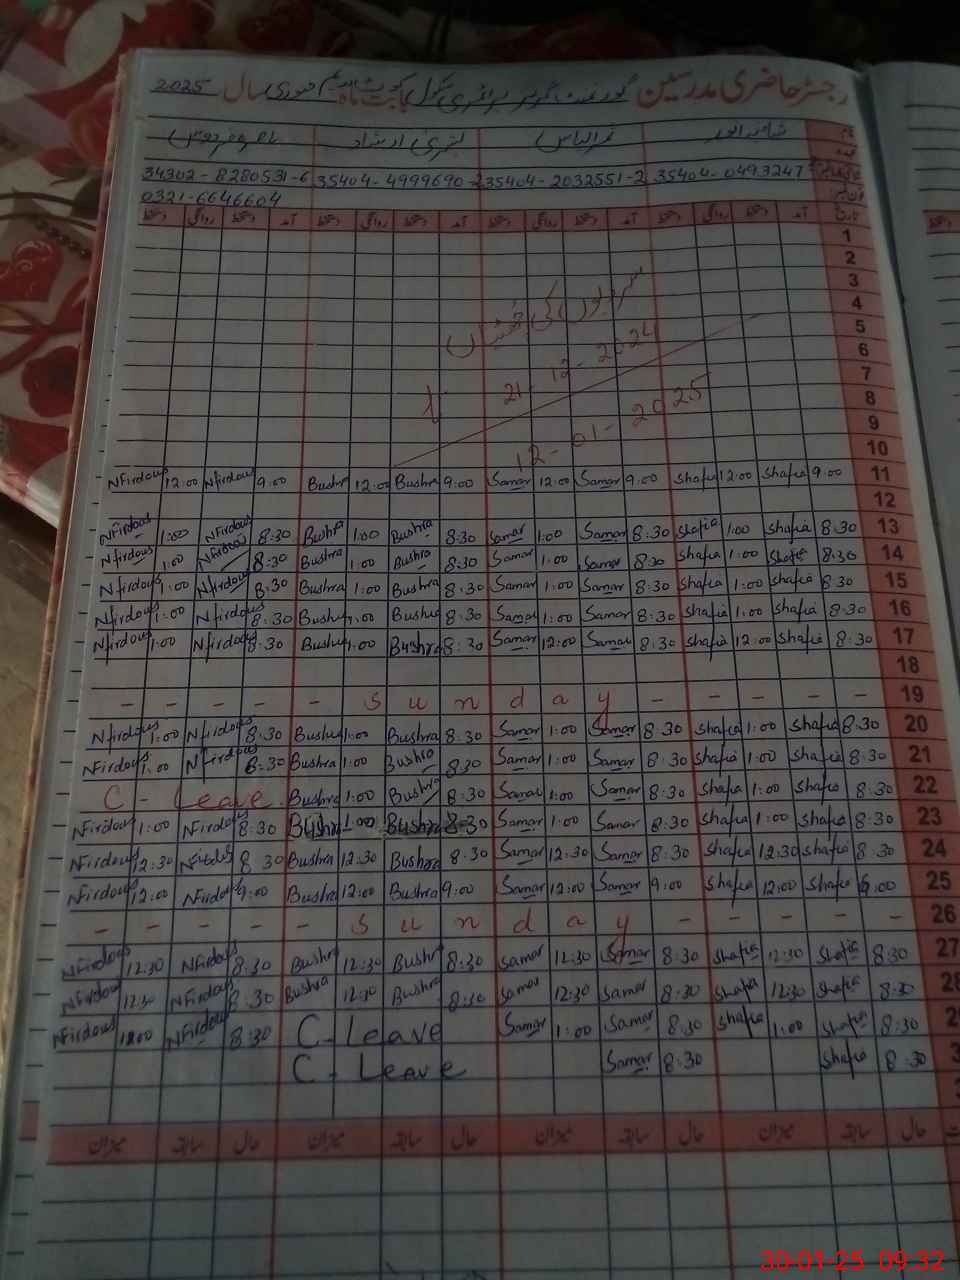 رجسٹر حاضری مدرسین گورنمنٹ گرلز پرائمری سکول بابت ماہ جنوری سال 2025
34302-8280531-6 35404-4999690-2 35404-2032551-2 35404-0493247
0321-6646604
1
2
3
سردیوں کی چھٹیاں
4
5
21-12-2024
6
7
8
12-01-2025
9
10
NFirdous 12:00 NFirdous 9:00 Bushra 12:00 Bushra 9:00 Samar 12:00 Samar 9:00 Shafia 12:00 Shafia 9:00 11
12
NFirdous 1:00 NFirdous 8:30 Bushra 1:00 Bushra 8:30 Samar 1:00 Samar 8:30 Shafia 1:00 Shafia 8:30 13
NFirdous 1:00 NFirdous 8:30 Bushra 1:00 Bushra 8:30 Samar 1:00 Samar 8:30 Shafia 1:00 Shafia 8:30 14
NFirdous 1:00 NFirdous 8:30 Bushra 1:00 Bushra 8:30 Samar 1:00 Samar 8:30 Shafia 1:00 Shafia 8:30 15
NFirdous 1:00 NFirdous 8:30 Bushra 1:00 Bushra 8:30 Samar 1:00 Samar 8:30 Shafia 1:00 Shafia 8:30 16
NFirdous 1:00 NFirdous 8:30 Bushra 1:00 Bushra 8:30 Samar 12:00 Samar 8:30 Shafia 12:00 Shafia 8:30 17
18
- - - - - S u n d a y - - - - - 19
NFirdous 1:00 NFirdous 8:30 Bushra 1:00 Bushra 8:30 Samar 1:00 Samar 8:30 Shafia 1:00 Shafia 8:30 20
NFirdous 1:00 NFirdous 8:30 Bushra 1:00 Bushra 8:30 Samar 1:00 Samar 8:30 Shafia 1:00 Shafia 8:30 21
C - Leave Bushra 1:00 Bushra 8:30 Samar 1:00 Samar 8:30 Shafia 1:00 Shafia 8:30 22
NFirdous 1:00 NFirdous 8:30 Bushra 1:00 Bushra 8:30 Samar 1:00 Samar 8:30 Shafia 1:00 Shafia 8:30 23
NFirdous 12:30 NFirdous 8 30 Bushra 12:30 Bushra 8:30 Samar 12:30 Samar 8:30 Shafia 12:30 Shafia 8:30 24
NFirdous 12:00 NFirdous 9:00 Bushra 12:00 Bushra 9:00 Samar 12:00 Samar 9:00 Shafia 12:00 Shafia 9:00 25
- - - - - S u n d a y - - - - - 26
NFirdous 12:30 NFirdous 8:30 Bushra 12:30 Bushra 8:30 Samar 12:30 Samar 8:30 Shafia 12:30 Shafia 8:30 27
NFirdous 12:30 NFirdous 8:30 Bushra 12:30 Bushra 8:30 Samar 12:30 Samar 8:30 Shafia 12:30 Shafia 8:30
NFirdous NFirdous 8:30 C - Leave Samar 1:00 Samar 8:30 Shafia 1:00 Shafia 8:30
C - Leave Samar 8:30 Shafia 8:30
حال سابقہ میزان حال سابقہ میزان حال سابقہ میزان حال سابقہ میزان
30-01-25 09:32